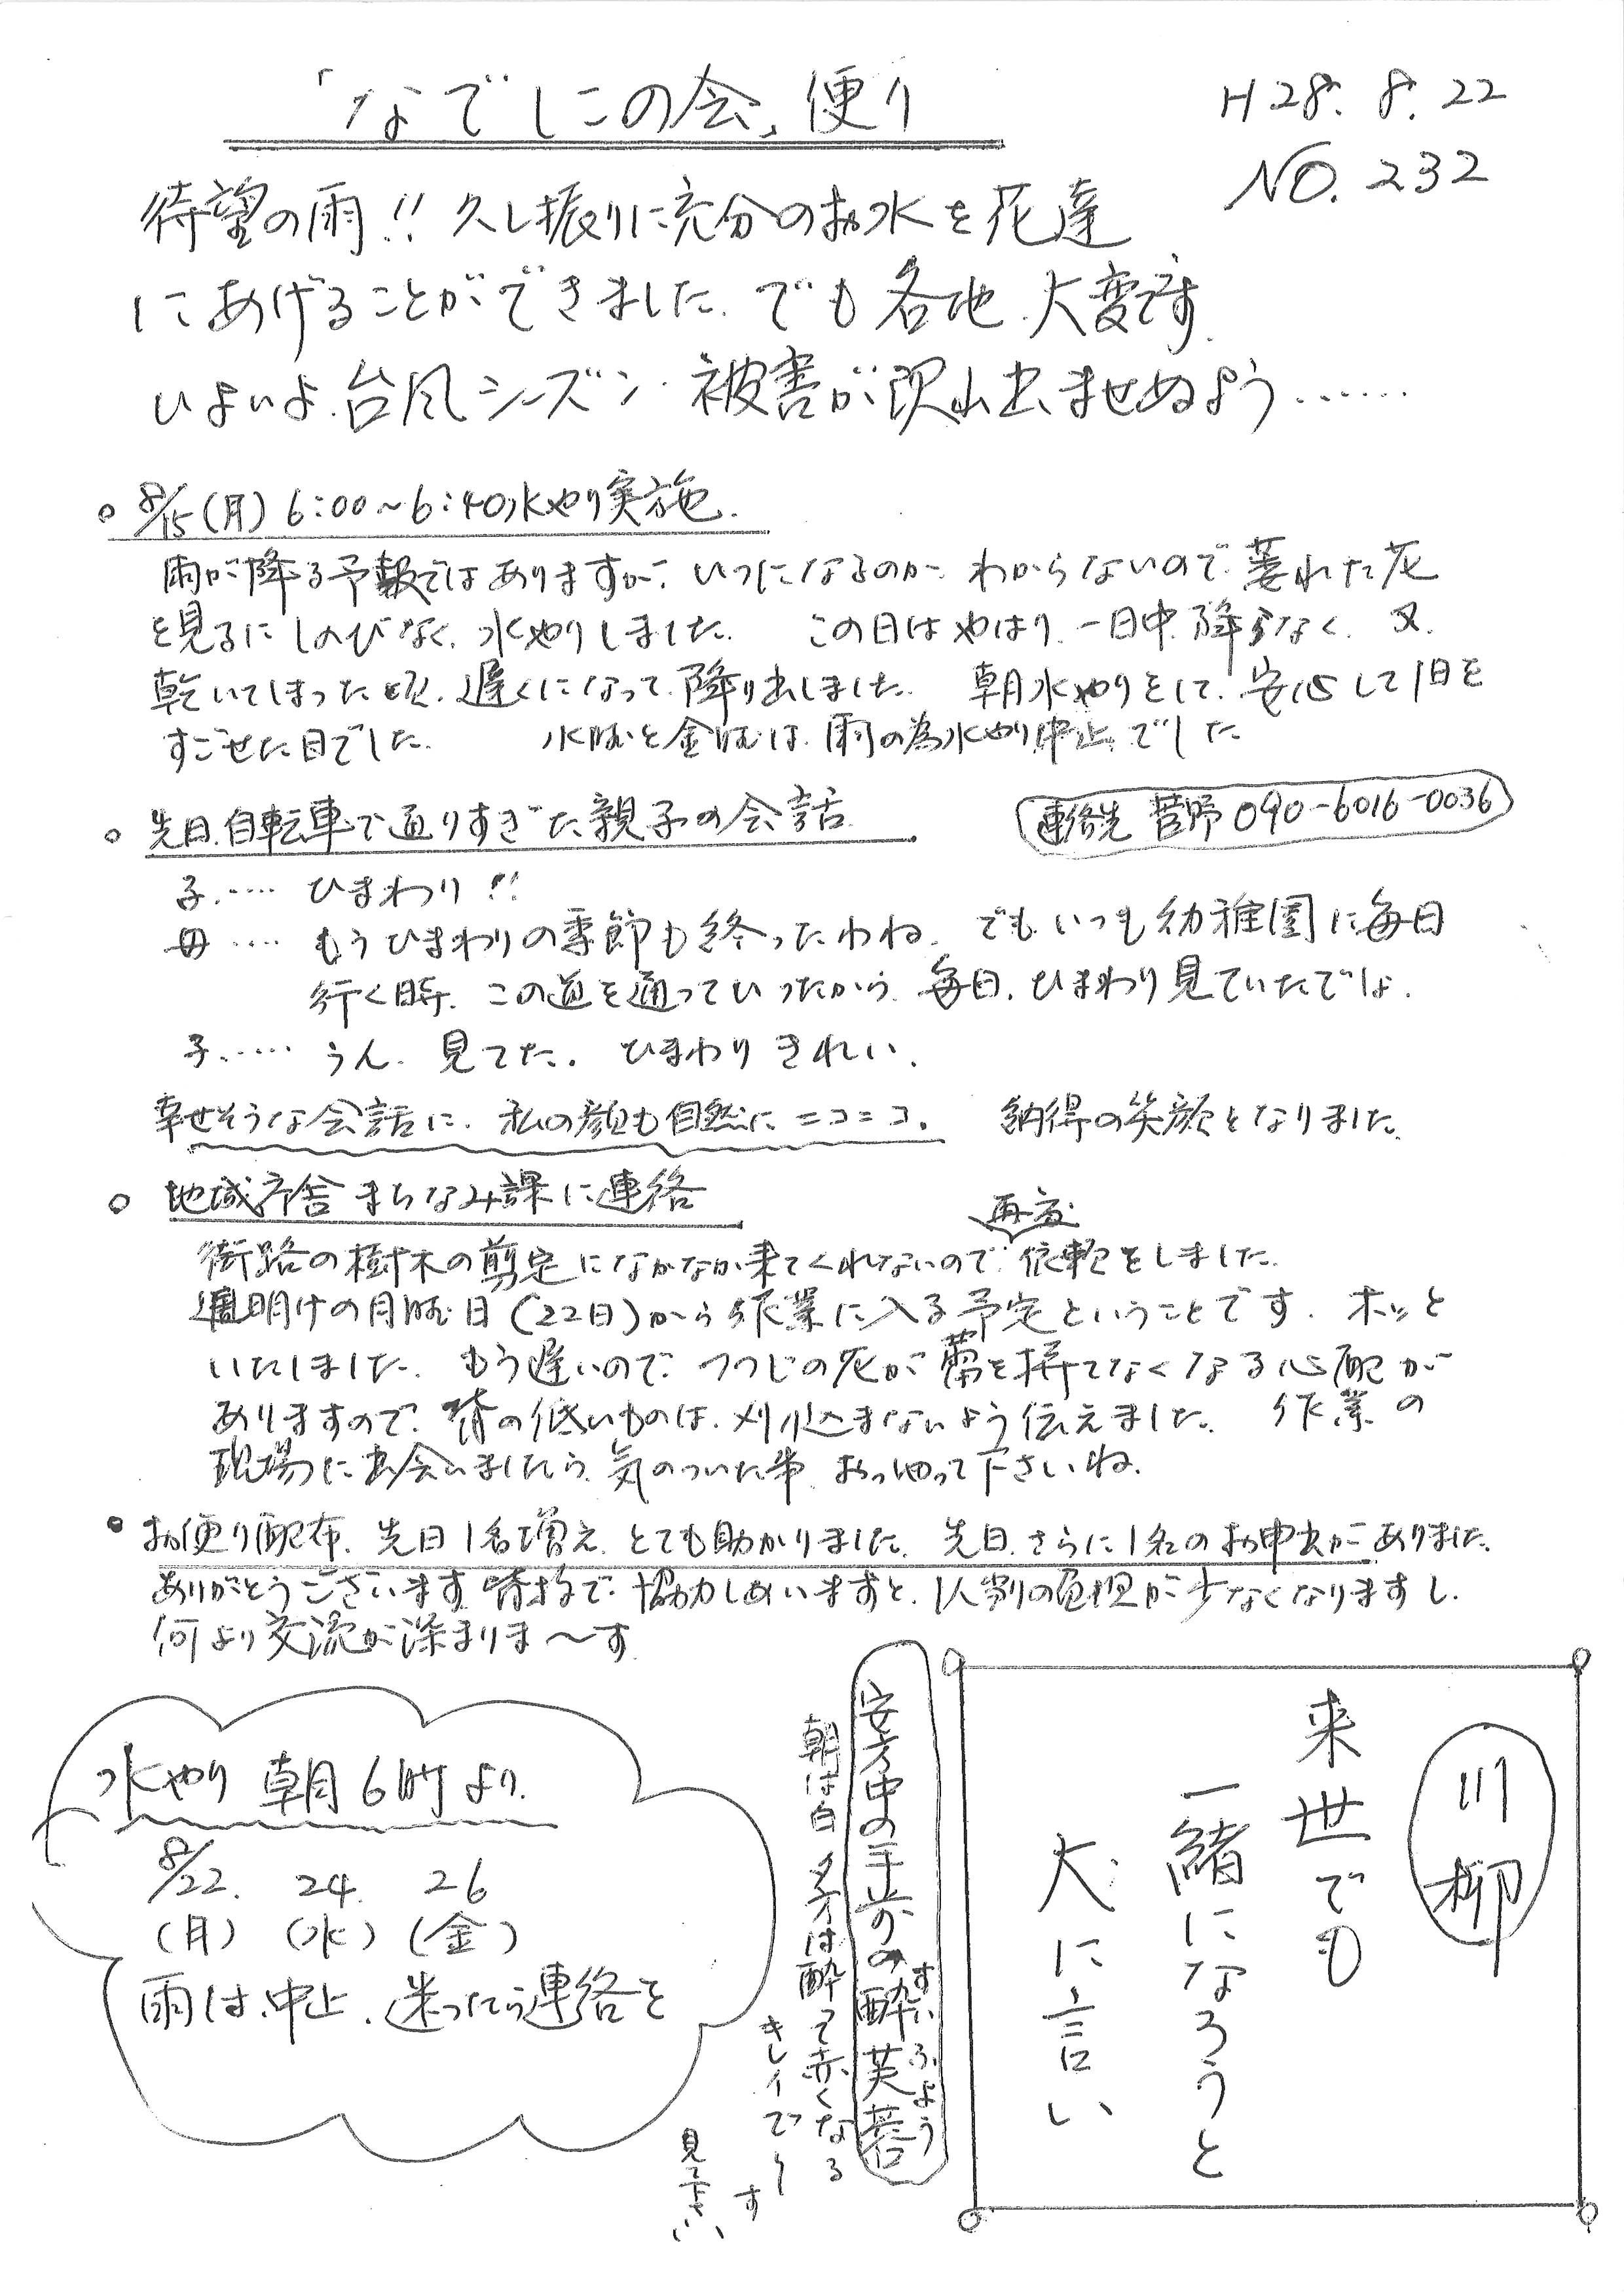 「なでしこの会」便り
H28.8.22
NO.232
待望の雨!! 久し振りに充分のお水を花達
にあげることができました. でも各地.大変です.
いよいよ.台風シーズン.被害が沢山出ませぬよう……
○ 8/15(月) 6:00～6:40水やり実施.
雨が降る予報ではありますが、いつになるのか わからないので.萎れた花
を見るにしのびなく.水やりしました. この日はやはり.一日中.降らなく.又.
乾いてしまった頃.遅くになって.降り出しました. 朝水やりをして.安心して1日を
すごせた日でした. 水曜と金曜は.雨の為水やり中止でした
○ 先日.自転車で通りすぎた親子の会話
連絡先 菅野 090-6016-0036
子.…… ひまわり!!
母 …… もうひまわりの季節も終ったわね. でもいつも幼稚園に毎日
行く時. この道を通っていったから.毎日.ひまわり見ていたでしょ.
子…… うん. 見てた. ひまわりきれい.
幸せそうな会話に. 私の顔も自然にニコニコ. 納得の笑顔となりました.
○ 地域庁舎 まちなみ課に連絡
再度
街路の樹木の剪定になかなか来てくれないので.依頼をしました.
週明けの月曜日(22日)から作業に入る予定ということです. ホッと
いたしました. もう遅いので. つつじの花が蕾を持てなくなる心配が
ありますので. 背の低いものは.刈り込まないよう伝えました. 作業の
現場に出会いましたら.気のついた事.おっしゃって下さいね.
● お便り配布. 先日1名増え. とても助かりました. 先日.さらに1名のお申出がありました.
ありがとうございます. 皆様で.協力しあいますと. 1人当りの負担が少なくなりますし.
何より交流が深まりま～す.
川柳
来世でも
一緒になろうと
犬に言い
安方中の手前の酔芙蓉
すいふよう
朝は白 夕方は酔って赤くなる
きレイで～す
見て下さい
水やり 朝6時より.
8/22. 24. 26
(月) (水) (金)
雨は.中止. 迷ったら連絡を